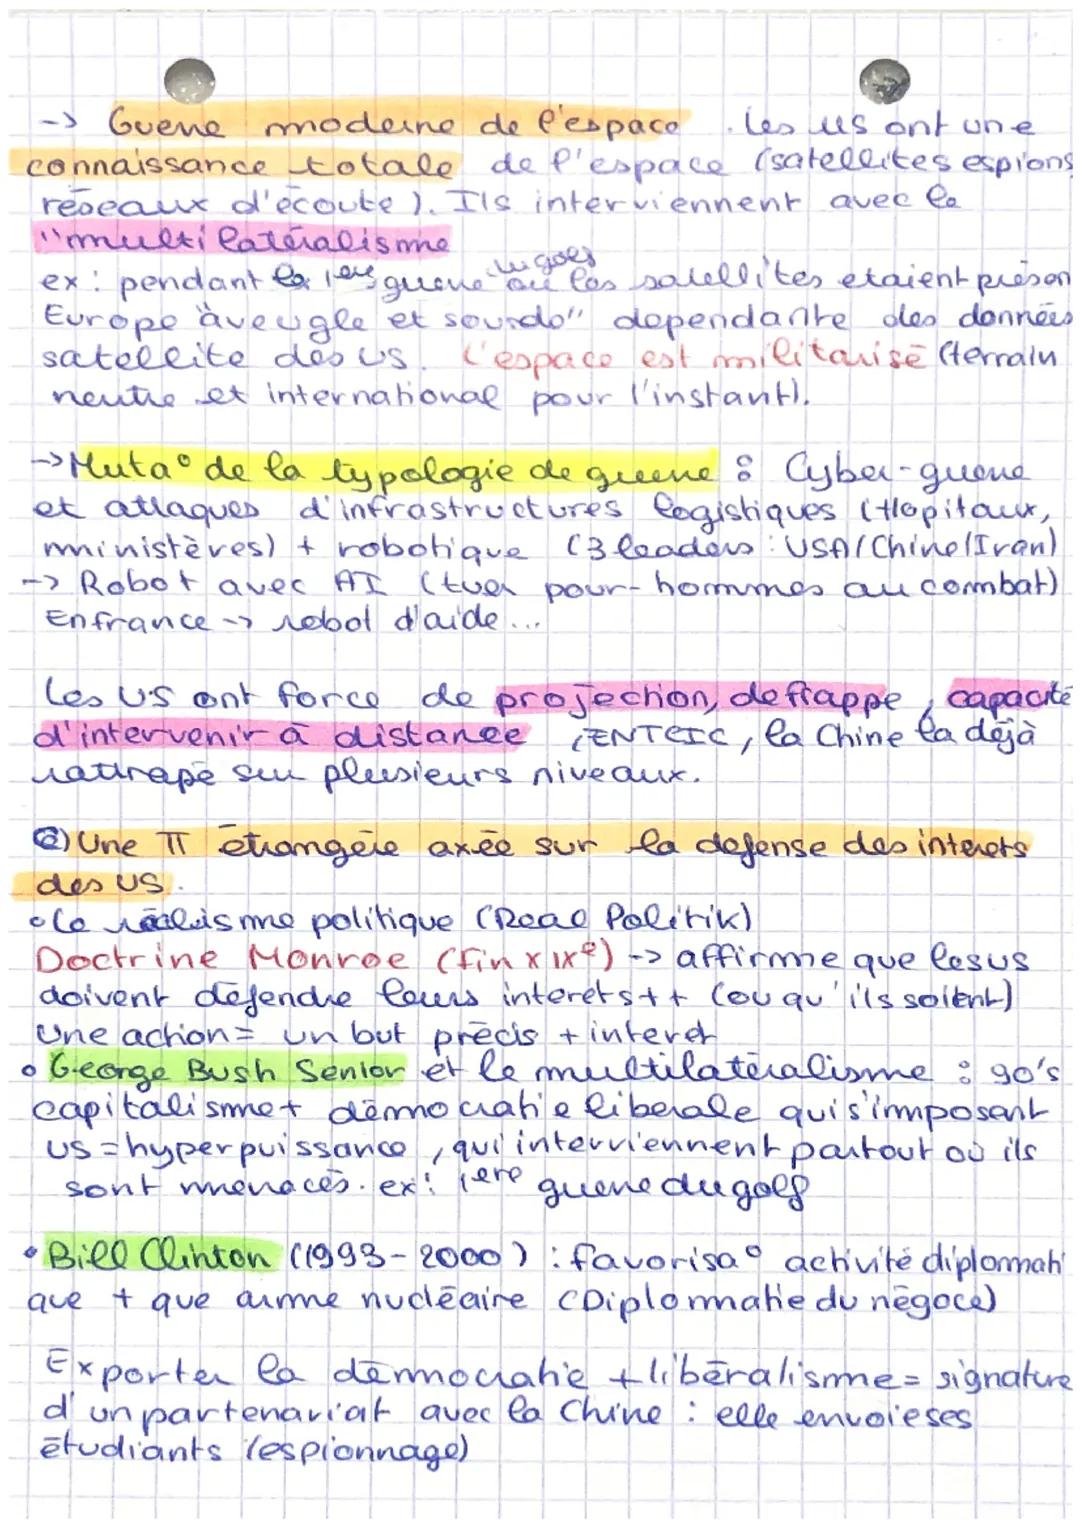 -> Guerre moderne de l'espace. les US ont une
connaissance totale de l'espace (satellites espions,
réseaux d'écoute). Ils interviennent avec le
"multilatéralisme
ex: pendant la 1ere guerre du golf où les satellites etaient présen
Europe "aveugle et sourde" dependante des données
satellite des US. L'espace est militarisé (terrain
neutre et international pour l'instant).
-> Muta° de la typologie de guerre : Cyber-guerre
et attaques d'infrastructures logistiques (Hopitaux,
ministères) + robotique (3 leaders : USA/Chine/Iran)
-> Robot avec AI (tuer pour - hommes au combat)
En france -> robot d'aide...
Les US ont force de projection, de frappe, capacité
d'intervenir à distance, ENTEIC, la Chine la déjà
rattrapé sur plusieurs niveaux.
②) Une π étrangère axée sur la defense des interets
des US.
• le réalisme politique (Real Politik)
Doctrine Monroe (fin XIXe) -> affirme que les us
doivent défendre leurs interets ++ (ou qu'ils soient)
Une action = un but précis + interet
• George Bush Senior et le multilatéralisme : 90's
capitalisme + démocratie liberale qui s'imposent
US = hyperpuissance, qui interviennent partout où ils
sont menacés. ex: 1ere guerre du golf
• Bill Clinton (1993-2000) : favorisa° activité diplomati
que + que arme nucléaire (Diplomatie du négoce)
Exporter la démocratie + libéralisme = signature
d'un partenariat avec la Chine : elle envoie ses
étudiants (espionnage)